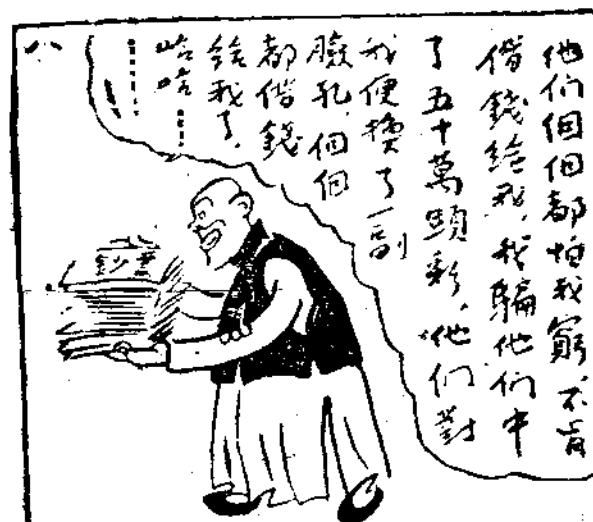 他们個個都怕我窮不肯
借錢给我，我騙他们中
了五十萬頭彩，他们對
我便換了一副
臉孔，個個
都借錢
给我了，
哈哈……
……
八
鈔票